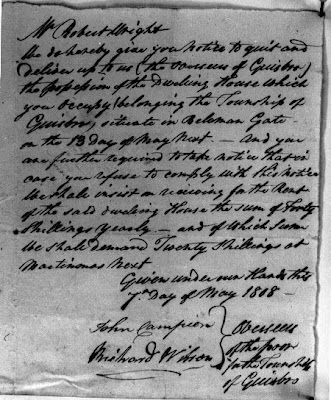 Mr Robert Wright
We do hereby give you Notice to quit and
deliver up to us (the Overseers of Guisbro)
the Possession of the Dweling House which
you occupy belonging the Township of
Guisbro, situate in Belman Gate
on the 13 Day of May Next — And you
are further required to take notice that in
case you refuse to comply with this notice
We shall insist on receiving for the Rent
of the said dweling House the sum of Forty
Shillings Yearly — and of Which Sum
We shall demand Twenty Shillings at
Martinmas Next
Given under our Hands this
7th Day of May 1808 —
John Campion
Richard Wilson
Overseers
of the poor
for the Township
of Guisbro